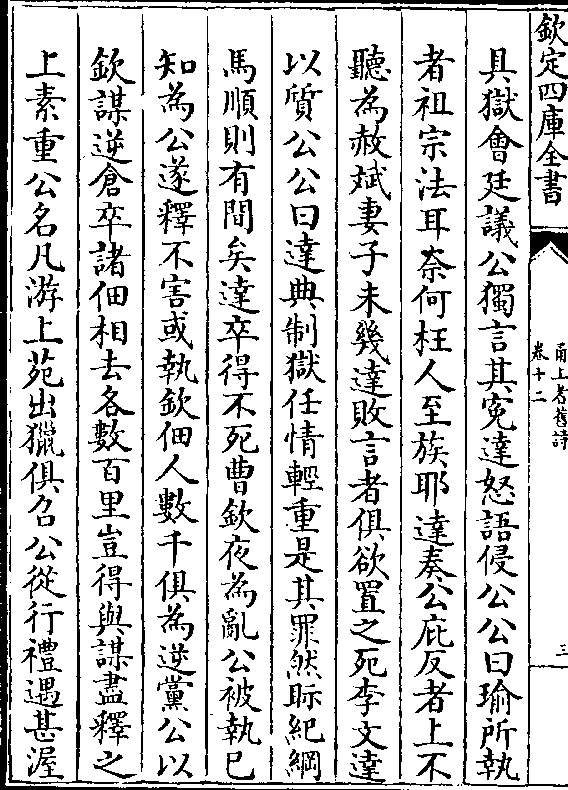 欽定四庫全書
甬上耆舊詩
卷十二
三
具獄會廷議公獨言其寃達怒語侵公公曰瑜所執
者祖宗法耳奈何枉人至族耶達奏公庇反者上不
聽為赦斌妻子未幾達敗言者俱欲置之死李文達
以質公公曰達典制獄任情輕重是其罪然眎紀綱
馬順則有間矣達卒得不死曹欽夜為亂公被執已
知為公遂釋不害或執欽佃人數千俱為逆黨公以
欽謀逆倉卒諸佃相去各數百里豈得與謀盡釋之
上素重公名凡游上苑出獵俱召公從行禮遇甚渥